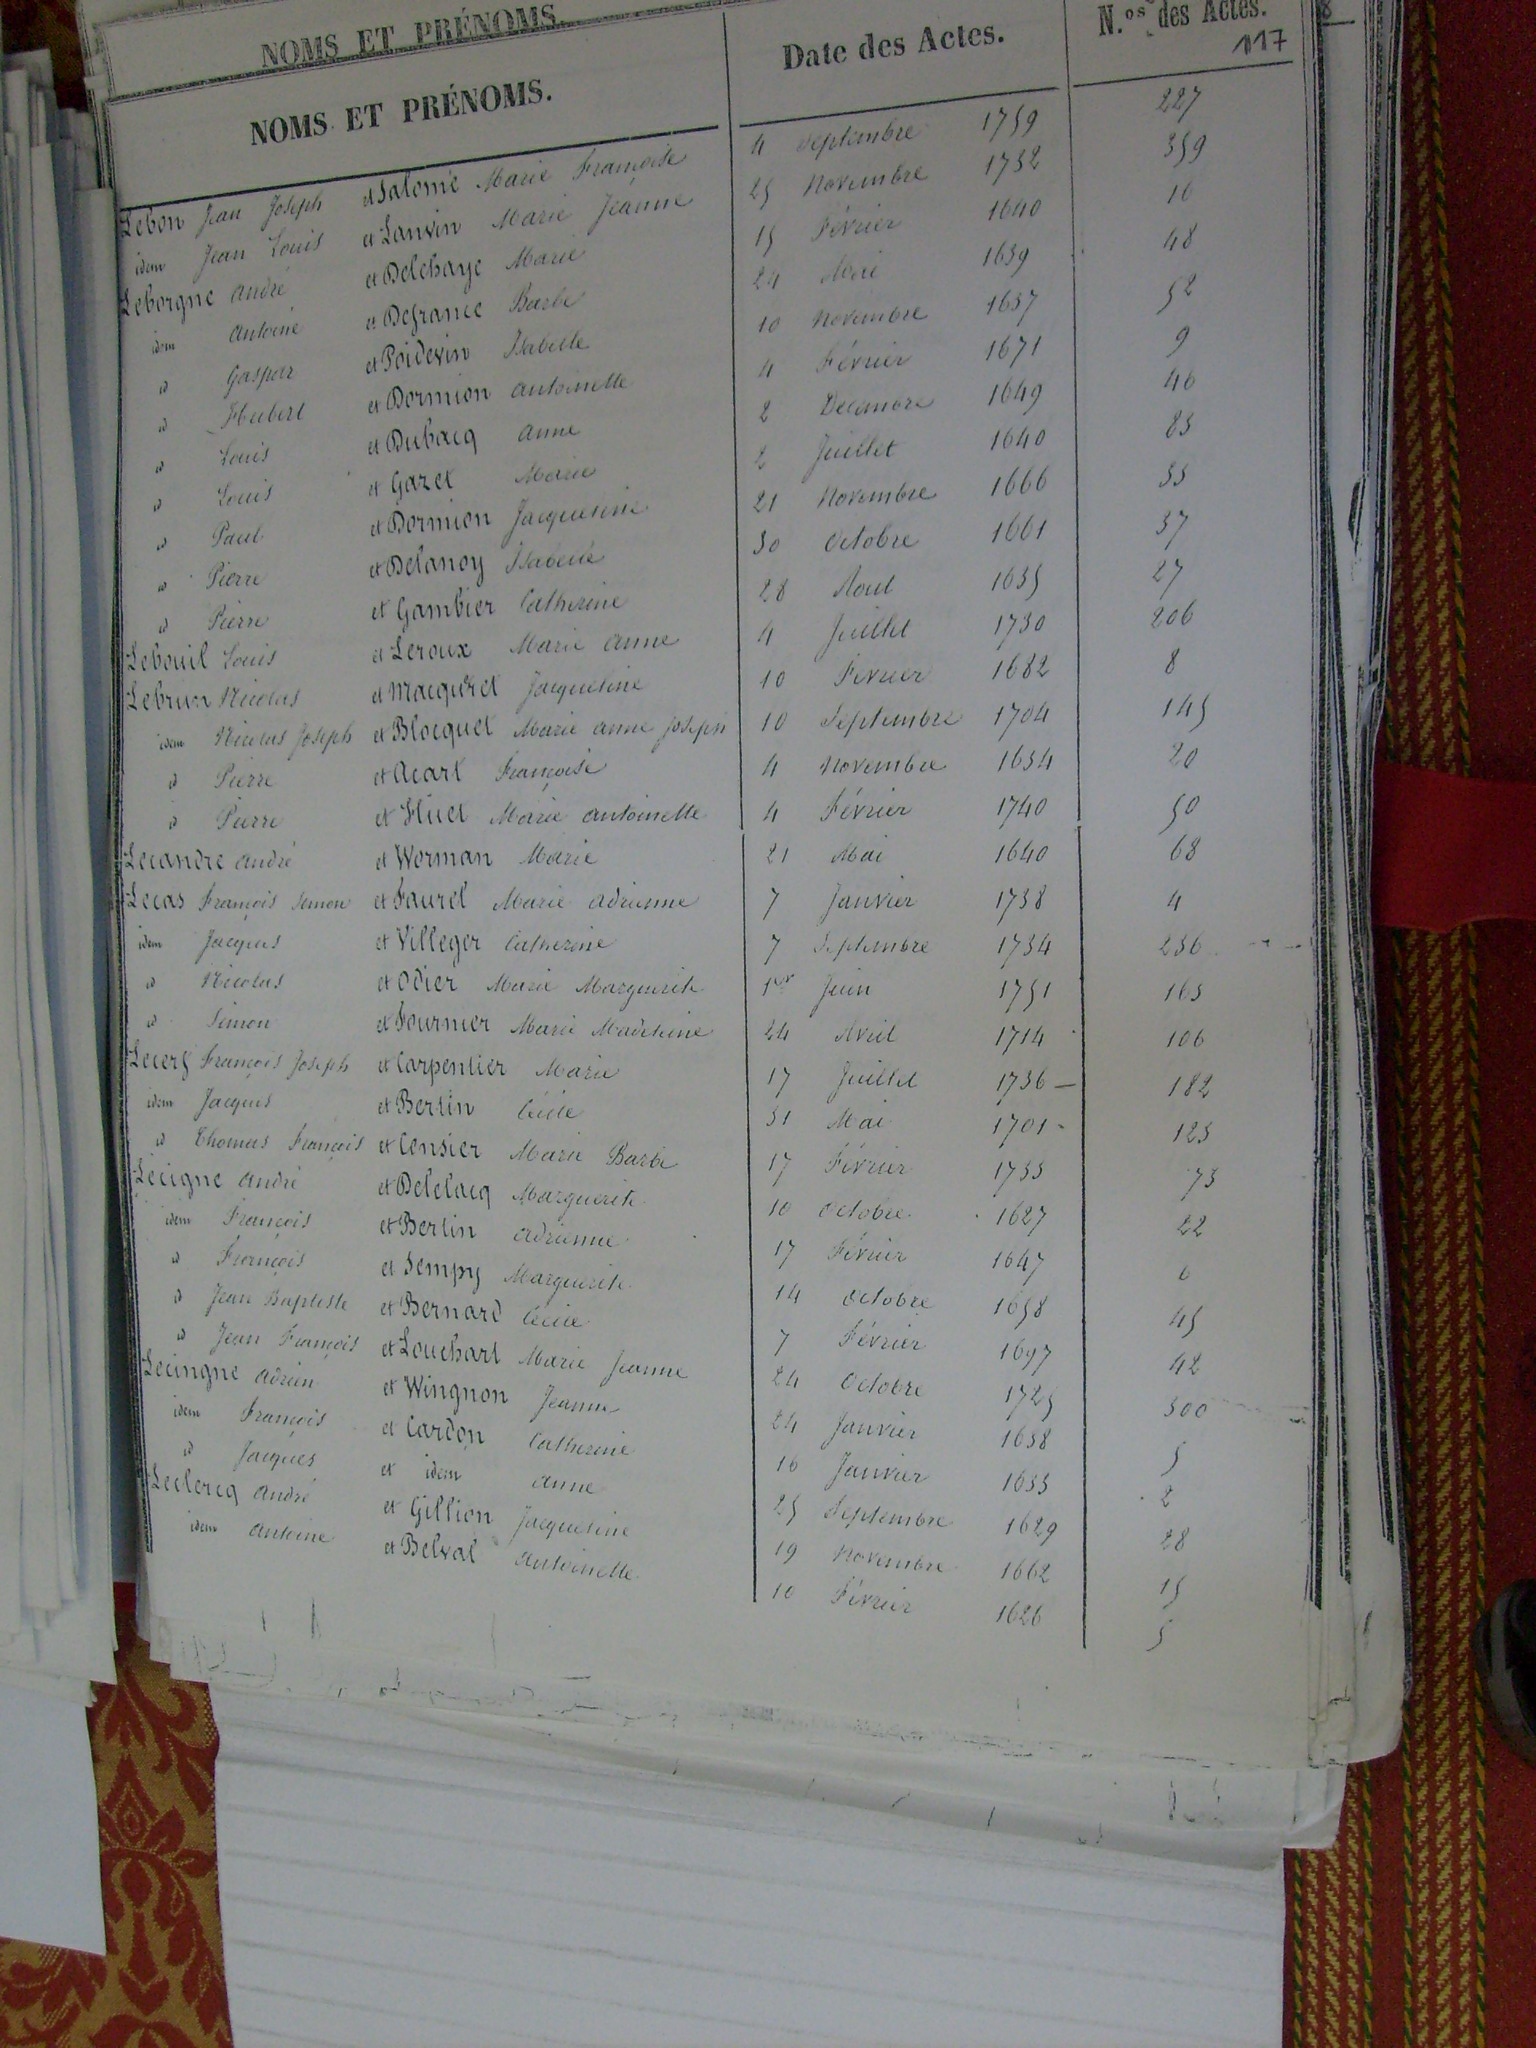 NOMS ET PRÉNOMS.
NOMS ET PRÉNOMS. Date des Actes. N.os des Actes.
117
Lebon Jean Joseph et Salomé Marie Françoise 4 Septembre 1759 227
idem Jean Louis et Lanvin Marie Jeanne 25 Novembre 1732 359
Leborgne André et Delehaye Marie 15 Février 1640 16
idem Antoine et Defrance Barbe 24 Mai 1639 48
id Gaspar et Poidevin Isabelle 10 Novembre 1637 52
id Hubert et Dormion Antoinette 4 Février 1671 9
id Louis et Dubacq Anne 2 Décembre 1649 46
id Louis et Gazet Marie 2 Juillet 1640 83
id Paul et Dormion Jacqueline 21 Novembre 1666 33
id Pierre et Delanoy Isabelle 30 Octobre 1661 37
id Pierre et Gambier Catherine 28 Aout 1635 27
Lebouil Louis et Leroux Marie Anne 4 Juillet 1730 206
Lebrun Nicolas et Macquret Jacqueline 10 Février 1682 8
idem Nicolas Joseph et Blocquel Marie Anne Joseph 10 Septembre 1704 145
id Pierre et Acart Françoise 4 Novembre 1634 20
id Pierre et Huet Marie Antoinette 4 Février 1740 50
Lecandre André et Worman Marie 21 Mai 1640 68
Lecas François Simon et Faurel Marie Adrienne 7 Janvier 1738 4
idem Jacques et Villeger Catherine 7 Septembre 1734 236
id Nicolas et Odier Marie Marguerite 1er Juin 1751 163
id Simon et Fournier Marie Madeleine 24 Avril 1714 106
Lecerf François Joseph et Carpentier Marie 17 Juillet 1736 182
idem Jacques et Bertin Cécile 31 Mai 1701 123
id Thomas François et Censier Marie Barbe 17 Février 1733 73
Lecigne André et Delclacq Marguerite 10 Octobre 1627 22
idem François et Bertin Adrienne 17 Février 1647 6
id François et Sempy Marguerite 14 Octobre 1658 45
id Jean Baptiste et Bernard Cécile 7 Février 1697 42
id Jean François et Louchart Marie Jeanne 24 Octobre 1725 300
Lecingne Adrien et Wingnon Jeanne 24 Janvier 1638 5
idem François et Cardon Catherine 16 Janvier 1633 2
id Jacques et idem Anne 25 Septembre 1629 28
Leclercq André et Gillion Jacqueline 19 Novembre 1662 15
idem Antoine et Belval Antoinette 10 Février 1626 5